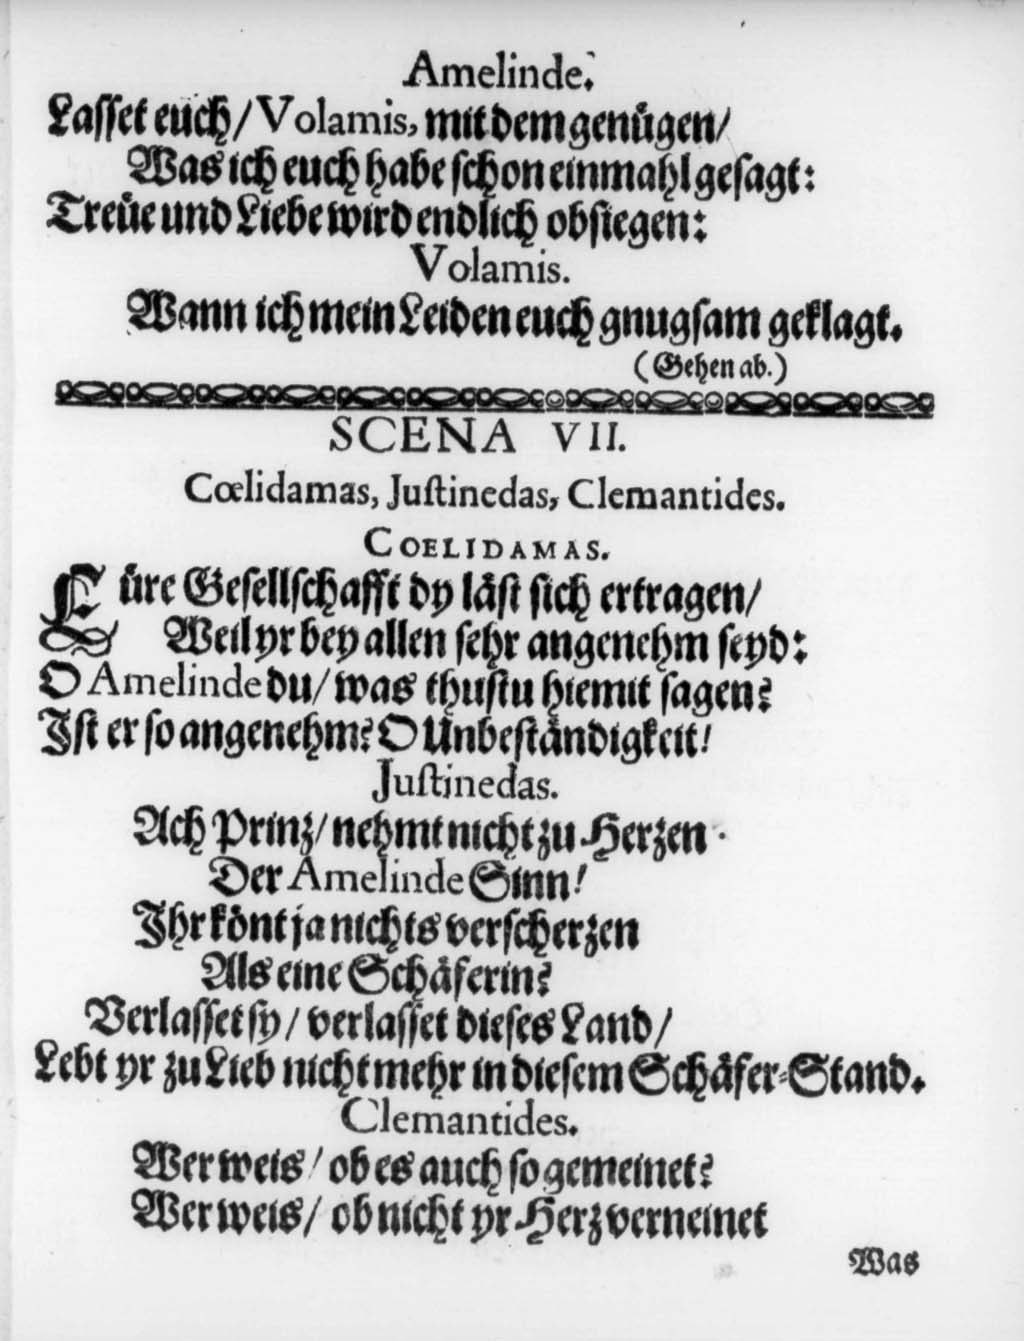 Amelinde.
Lasset euch/ Volamis, mit dem genügen/
Was ich euch habe schon einmahl gesagt:
Treüe und Liebe wird endlich obsiegen:
Volamis.
Wann ich mein Leiden euch gnugsam geklagt.
(Gehen ab.)
SCENA VII.
Cœlidamas, Justinedas, Clemantides.
COELIDAMAS.
Eüre Gesellschafft dy läst sich ertragen/
Weil yr bey allen sehr angenehm seyd:
O Amelinde du/ was thustu hiemit sagen?
Ist er so angenehm? O Unbeständigkeit!
Justinedas.
Ach Prinz/ nehmt nicht zu Herzen
Der Amelinde Sinn!
Ihr könt ja nichts verscherzen
Als eine Schäferin?
Verlasset sy/ verlasset dieses Land/
Lebt yr zu Lieb nicht mehr in diesem Schäfer-Stand.
Clemantides.
Wer weis/ ob es auch so gemeinet?
Wer weis/ ob nicht yr Herz verneinet
Was